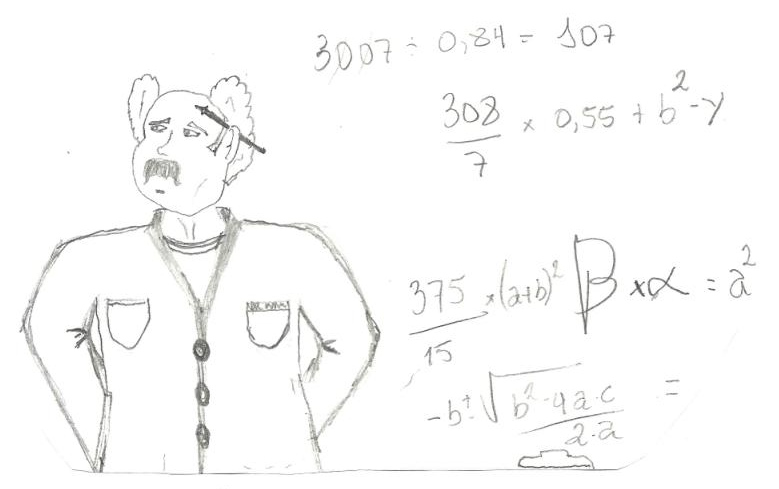 3007 ÷ 0,84 = 107
308/7 × 0,55 + b² - y
375/15 × (a+b)² β × α = a²
-b ± √b² - 4a·c / 2·a =